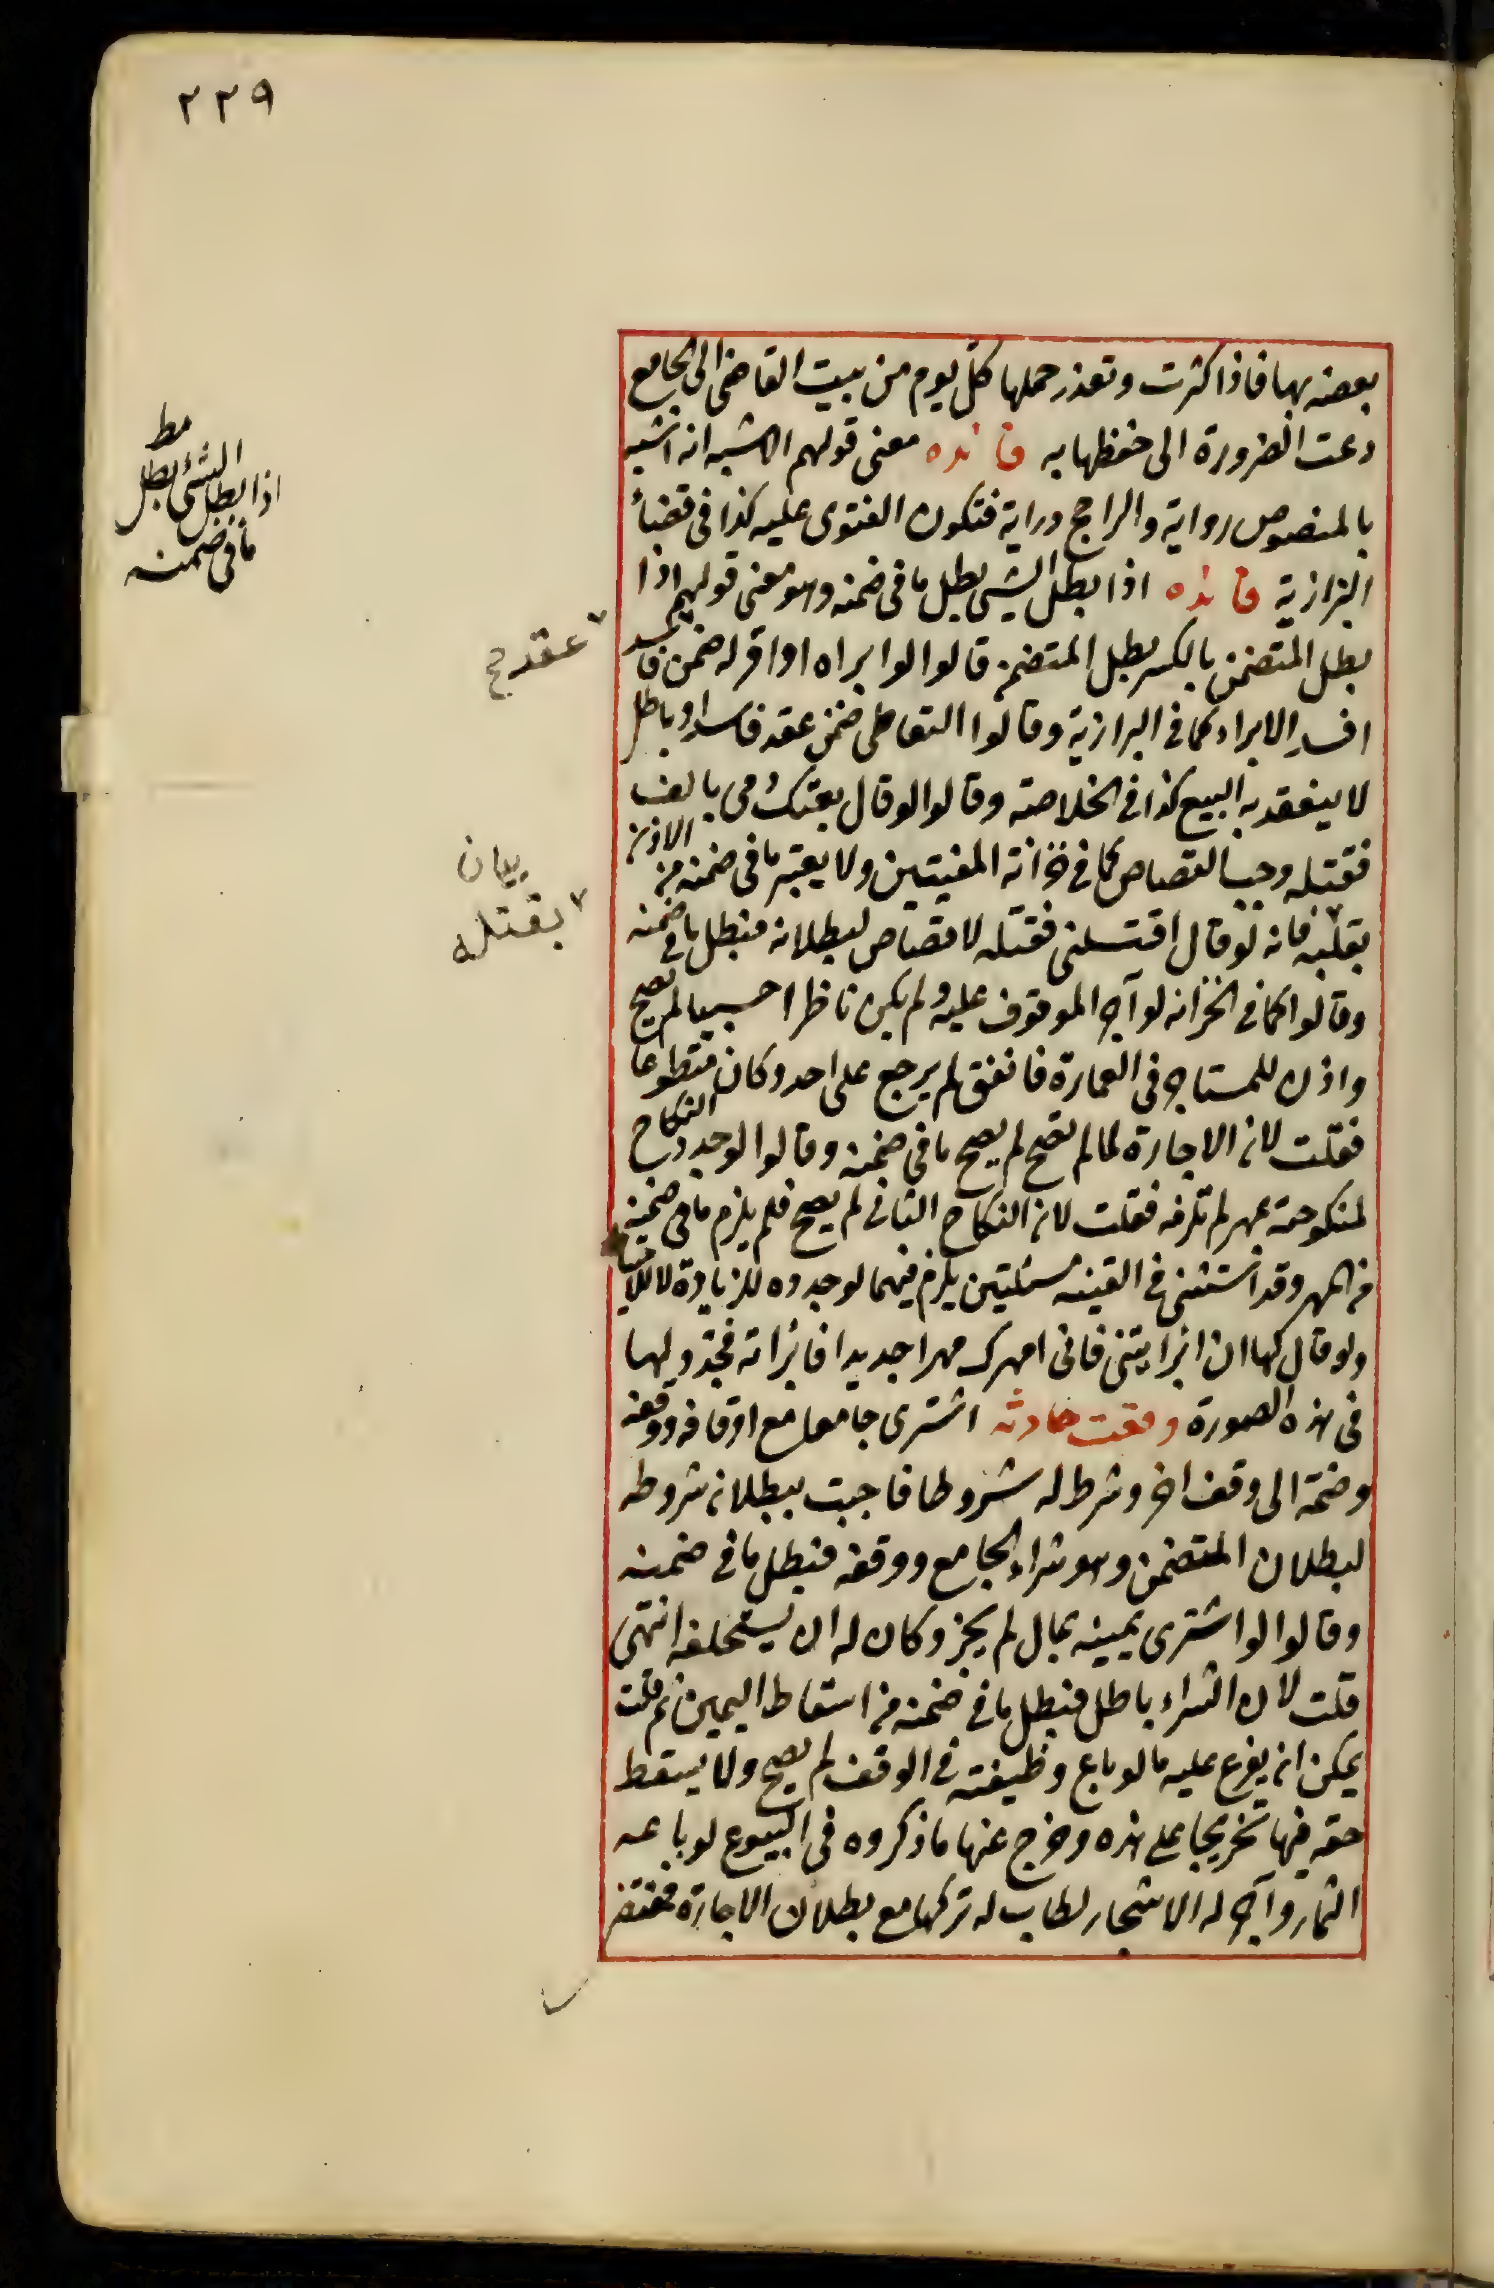 ٢٢٩
بعضه بها فاذا كثرت وتعذر حملها كل يوم من بيت القاضى الى الجامع
دعت الضرورة الى حفظها به فائده معنى قولهم الاشبه انه اشبه
بالمنصوص رواية والراجح دراية فتكون الفتوى عليه كذا فى قضاء
البزازية فائده اذا بطل الشىء بطل ما فى ضمنه وهو معنى قولهم اذا
بطل المتضمن بالكسر بطل المتضمن قالوا لو ابراه او اقر له ضمن فاسد
افسد الابراء كما فى البزازية وقالوا التعاطى ضمن عقد فاسد او باطل
لا ينعقد به البيع كذا فى الخلاصة وقالوا لو قال بعتك دمى بالف
فقتله وجب القصاص كما فى خزانة المفتيين ولا يعتبر ما فى ضمنه من الاذن
بقلبه فانه لو قال اقتلنى فقتله لا قصاص لبطلانه فبطل ما فى ضمنه
وقالوا كما فى الخزانه لو آجر الموقوف عليه ولم يكن ناظرا حسبيا لم يصح
واذن للمستاجر فى العمارة فانفق لم يرجع على احد وكان متطوعا
فقلت لان الاجارة لما لم تصح لم يصح ما فى ضمنه وقالوا لو جدد النكاح
لمنكوحته بمهر لم تلزمه فقلت لان النكاح الثانى لم يصح فلم يلزم ما فى ضمنه
من المهر وقد استثنى فى القينه مسئلتين يلزم فيهما لو جدده للزيادة لا للاحتياط
ولو قال لها ان ابرأيتنى فانى امهرك مهرا جديدا فابرأته فجدد لها
فى هذه الصورة وقعت حادثه اشترى جامعا مع اوقافه ووقفه
وضمه الى وقف اخر وشرط له شروطا فاجبت ببطلان شروطه
لبطلان المتضمن وهو شراء الجامع ووقفه فبطل ما فى ضمنه
وقالوا لو اشترى يمينه بمال لم يجز وكان له ان يستحلفه انتهى
قلت لان الشراء باطل فبطل ما فى ضمنه من اسقاط اليمين ثم قلت
يمكن ان يفرع عليه ما لو باع وظيفته فى الوقف لم يصح ولا يسقط
حقه فيها تخريجا على هذه وخرج عنها ما ذكروه فى البيوع لو باعه
الثمار وآجر له الاشجار لطاب له تركها مع بطلان الاجارة فمقتض
مط
اذا بطل الشئ بطل
ما فى ضمنه
عقد صح
بيان
بقتله